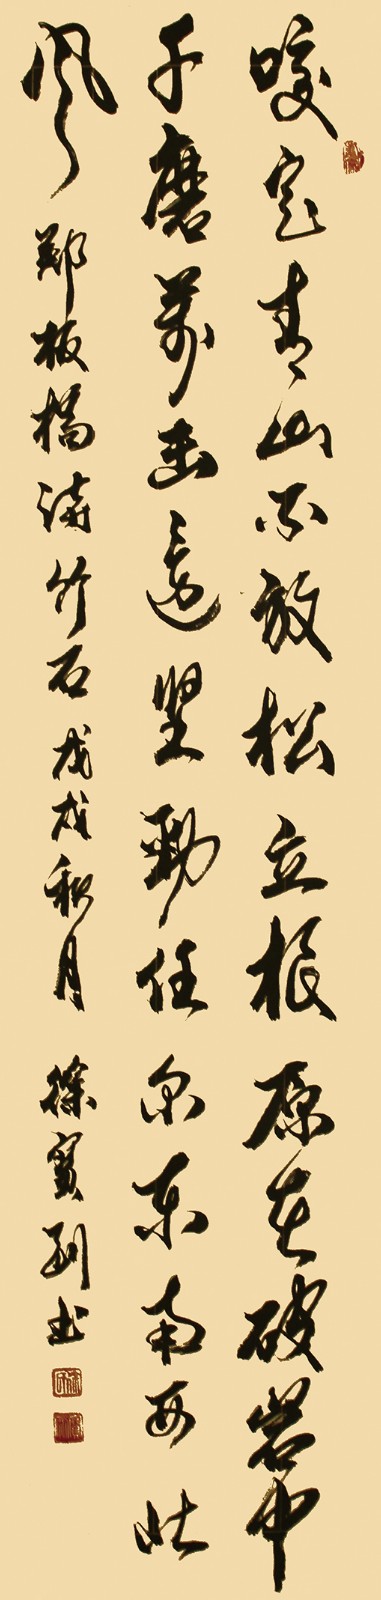 咬定青山不放松立根原在破岩中
千磨萬击還坚勁任尔东南西北
风 鄭板橋诗竹石戊戌秋月 徐寶书